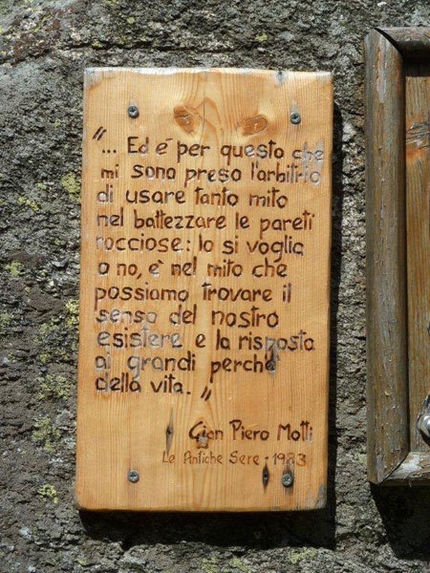 "... Ed é per questo che
mi sono preso l'arbitrio
di usare tanto mito
nel battezzare le pareti
rocciose: lo si voglia
o no, è nel mito che
possiamo trovare il
senso del nostro
esistere e la risposta
ai grandi perchè
della vita. "
Gian Piero Motti
Le Antiche Sere · 1983